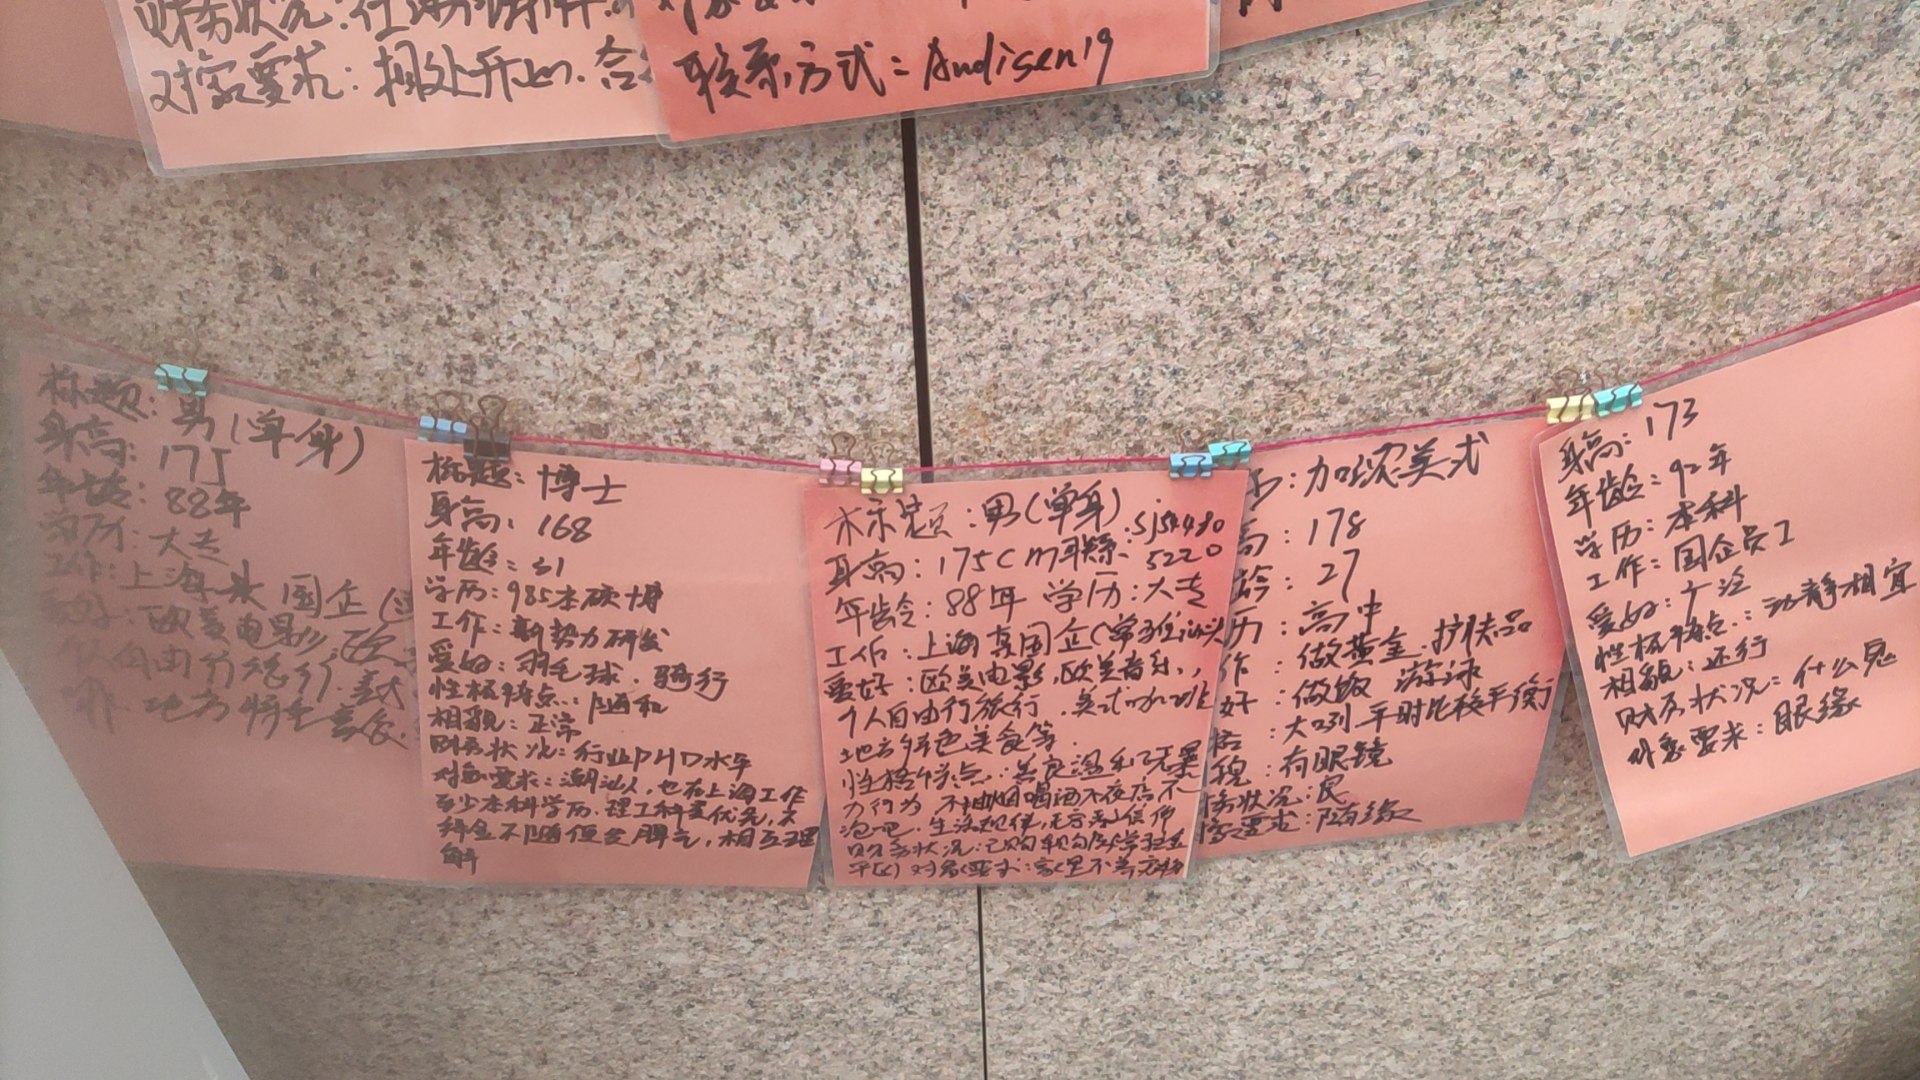 财务状况：
对家要求：相处开心.合
联系方式：Andisen19
标题：男(单身)
身高：175
年龄：88年
学历：大专
工作：上海 国企
爱好：欧美电影,欧
个人自由行旅行.美
啡.地方特色美食.
标题：博士
身高：168
年龄：31
学历：985本硕博
工作：新势力研发
爱好：羽毛球.骑行
性格特点：随和
相貌：正常
财务状况：行业PHD水平
对象要求：潮汕人,也在上海工作
至少本科学历.理工科类优先,不
拜金不随便发脾气,相互理
解
标题：男(单身)
联系：sj54480
5220
身高：175cm
年龄：88年 学历：大专
工作：上海 国企
爱好：欧美电影,欧美音乐,
个人自由行旅行.美式咖啡
地方特色美食等.
性格特点：善良温和 无暴
力行为 不抽烟喝酒不夜店不
泡吧.生活规律,无宗教信仰
财务状况：已购车购房
对象要求：家里不养宠物
：加浓美式
高：178
龄：27
历：高中
作：做黄金.护肤品
好：做饭 游泳
：大咧 平时比较平衡
貌：有眼镜
务状况：民
要求：随缘
身高：173
年龄：92年
学历：本科
工作：国企员工
爱好：广泛
性格特点：动静相宜
相貌：还行
财务状况：什么鬼
对象要求：眼缘